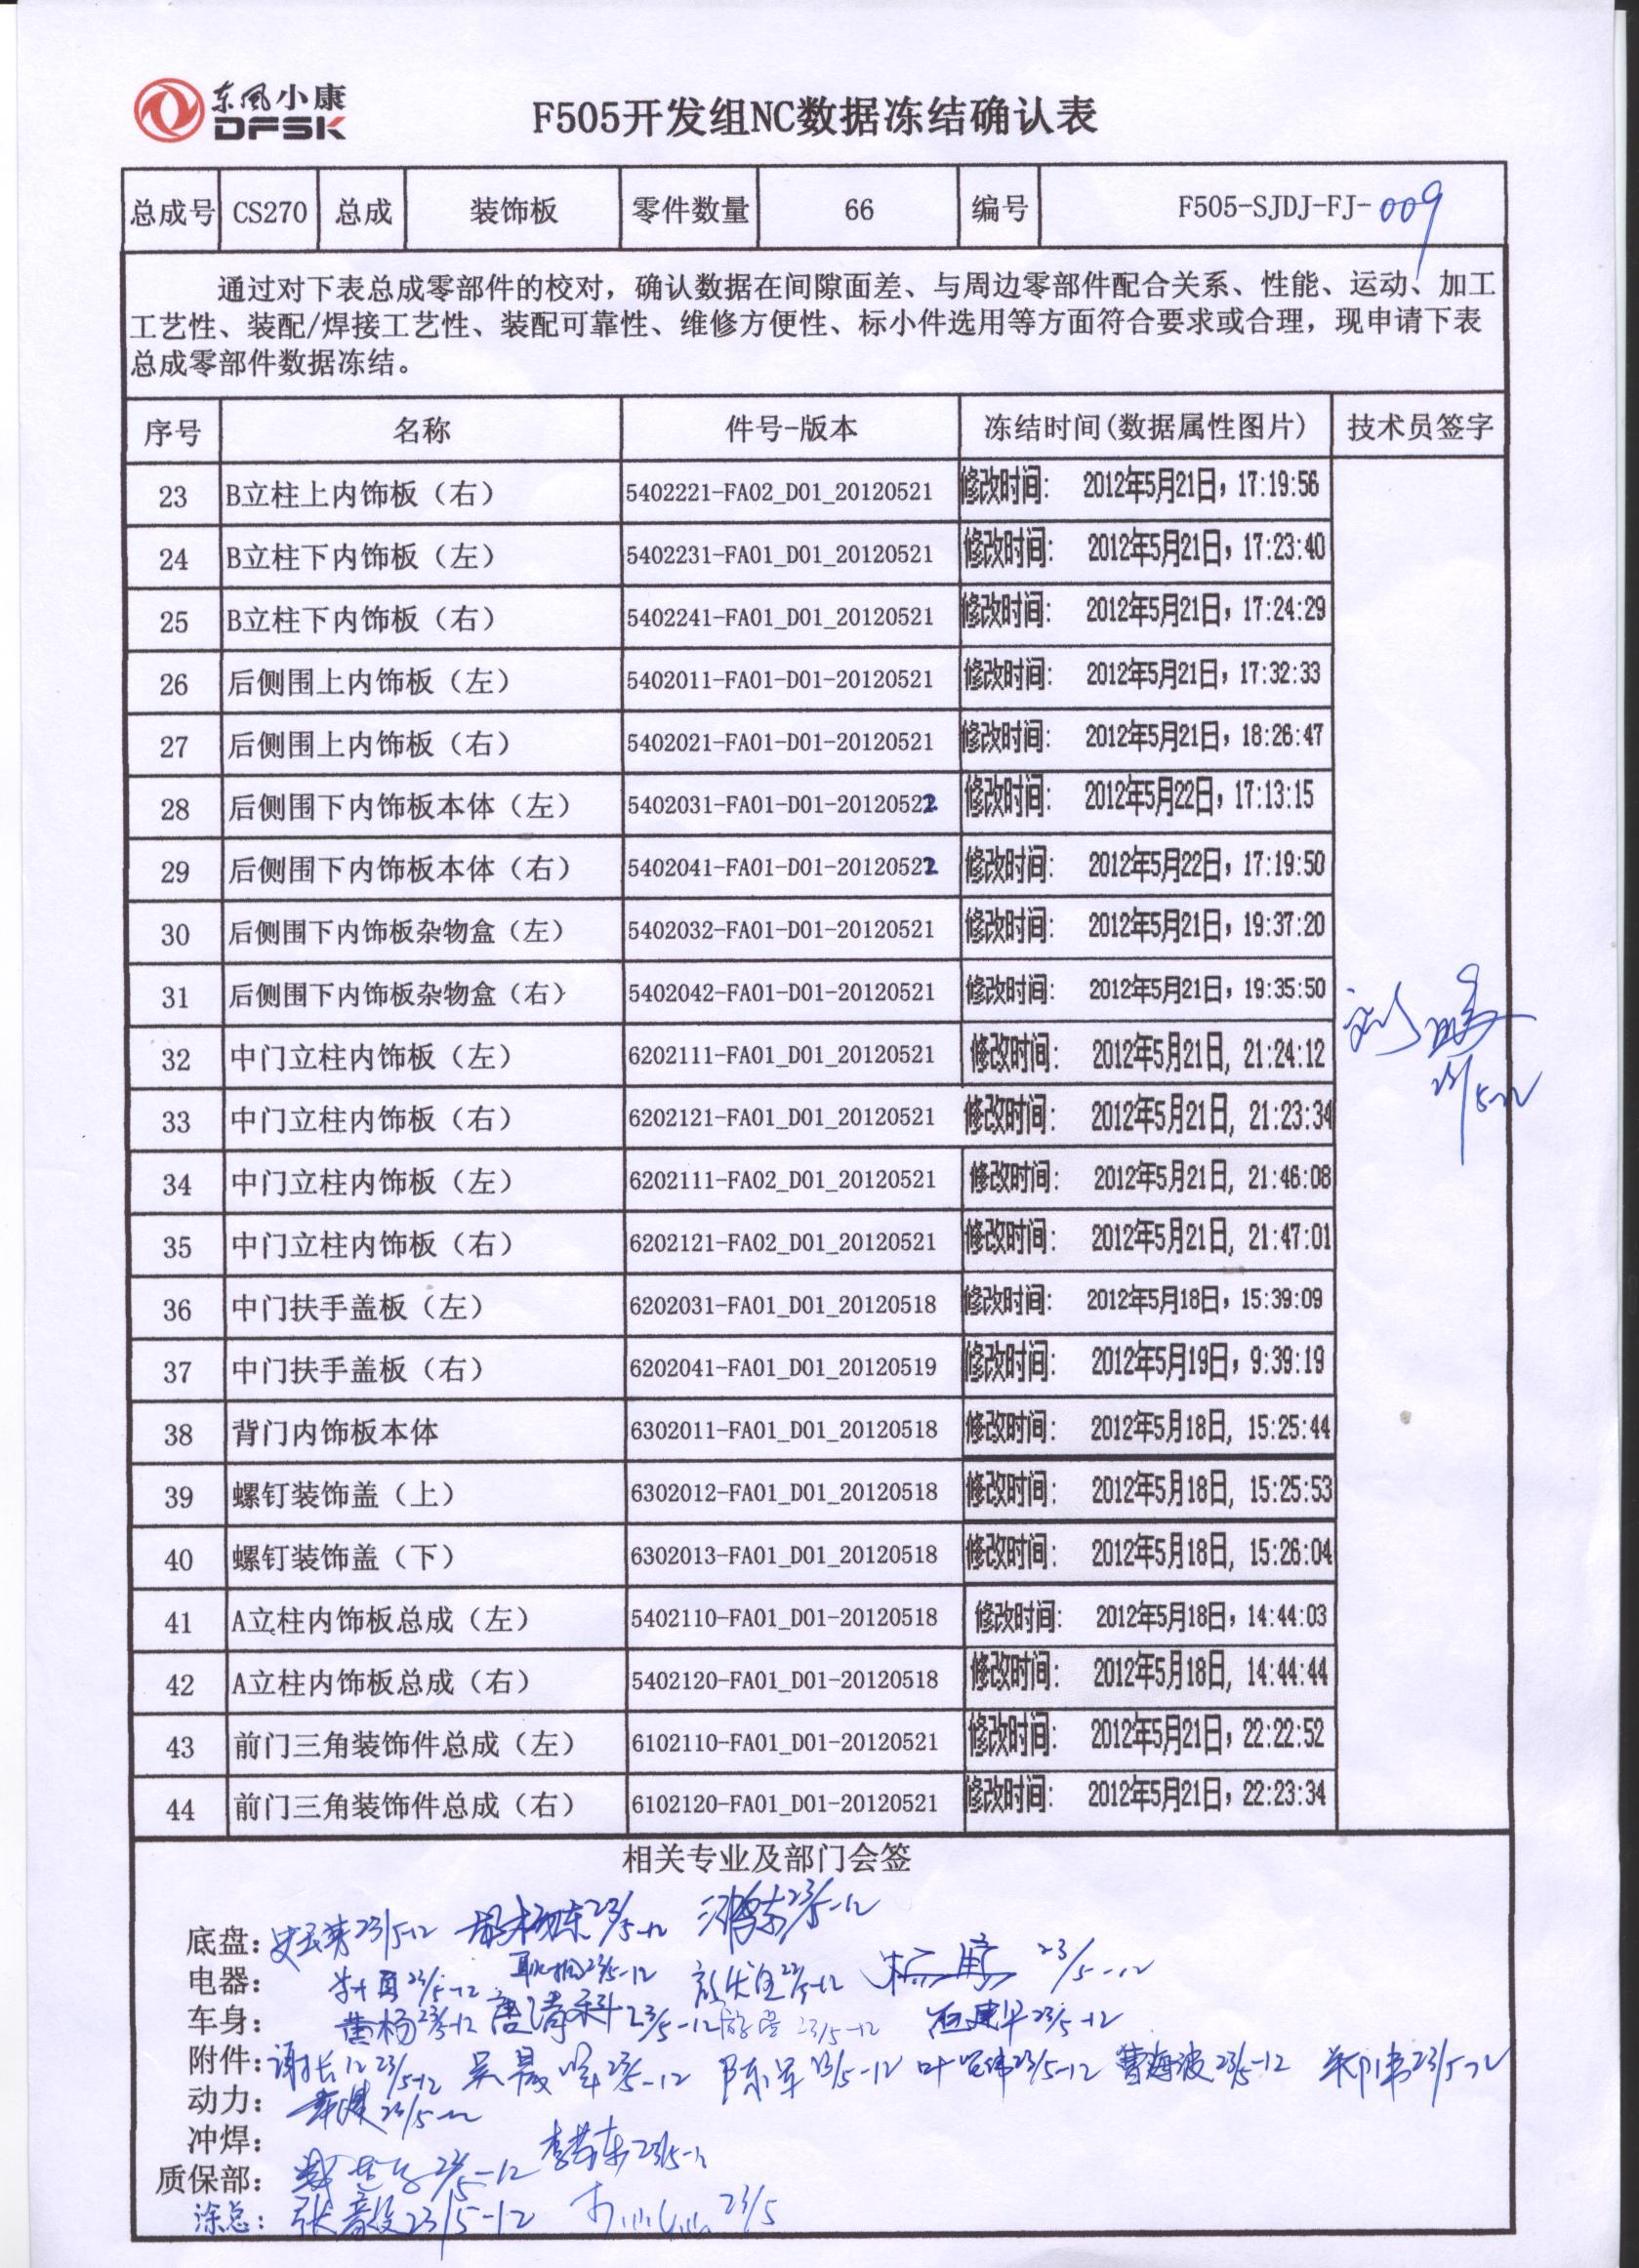 东风小康
DFSK
F505开发组NC数据冻结确认表
总成号 CS270 总成 装饰板 零件数量 66 编号 F505-SJDJ-FJ-009
通过对下表总成零部件的校对，确认数据在间隙面差、与周边零部件配合关系、性能、运动、加工
工艺性、装配/焊接工艺性、装配可靠性、维修方便性、标小件选用等方面符合要求或合理，现申请下表
总成零部件数据冻结。
序号 名称 件号-版本 冻结时间(数据属性图片) 技术员签字
23 B立柱上内饰板（右） 5402221-FA02_D01_20120521 修改时间： 2012年5月21日，17:19:56
24 B立柱下内饰板（左） 5402231-FA01_D01_20120521 修改时间： 2012年5月21日，17:23:40
25 B立柱下内饰板（右） 5402241-FA01_D01_20120521 修改时间： 2012年5月21日，17:24:29
26 后侧围上内饰板（左） 5402011-FA01-D01-20120521 修改时间： 2012年5月21日，17:32:33
27 后侧围上内饰板（右） 5402021-FA01-D01-20120521 修改时间： 2012年5月21日，18:26:47
28 后侧围下内饰板本体（左） 5402031-FA01-D01-20120522 修改时间： 2012年5月22日，17:13:15
29 后侧围下内饰板本体（右） 5402041-FA01-D01-20120522 修改时间： 2012年5月22日，17:19:50
30 后侧围下内饰板杂物盒（左） 5402032-FA01-D01-20120521 修改时间： 2012年5月21日，19:37:20
31 后侧围下内饰板杂物盒（右） 5402042-FA01-D01-20120521 修改时间： 2012年5月21日，19:35:50
32 中门立柱内饰板（左） 6202111-FA01_D01_20120521 修改时间： 2012年5月21日, 21:24:12
33 中门立柱内饰板（右） 6202121-FA01_D01_20120521 修改时间： 2012年5月21日, 21:23:34
34 中门立柱内饰板（左） 6202111-FA02_D01_20120521 修改时间： 2012年5月21日, 21:46:08
35 中门立柱内饰板（右） 6202121-FA02_D01_20120521 修改时间： 2012年5月21日, 21:47:01
36 中门扶手盖板（左） 6202031-FA01_D01_20120518 修改时间： 2012年5月18日，15:39:09
37 中门扶手盖板（右） 6202041-FA01_D01_20120519 修改时间： 2012年5月19日，9:39:19
38 背门内饰板本体 6302011-FA01_D01_20120518 修改时间： 2012年5月18日, 15:25:44
39 螺钉装饰盖（上） 6302012-FA01_D01_20120518 修改时间： 2012年5月18日, 15:25:53
40 螺钉装饰盖（下） 6302013-FA01_D01_20120518 修改时间： 2012年5月18日, 15:26:04
41 A立柱内饰板总成（左） 5402110-FA01_D01-20120518 修改时间： 2012年5月18日，14:44:03
42 A立柱内饰板总成（右） 5402120-FA01_D01-20120518 修改时间： 2012年5月18日, 14:44:44
43 前门三角装饰件总成（左） 6102110-FA01_D01-20120521 修改时间： 2012年5月21日，22:22:52
44 前门三角装饰件总成（右） 6102120-FA01_D01-20120521 修改时间： 2012年5月21日，22:23:34
相关专业及部门会签
底盘： 23/5-12 23/5-12 23/5-12
电器： 23/5-12 23/5-12 23/5-12 23/5-12
车身： 黄杨 23/5-12 唐清科 23/5-12 23/5-12 23/5-12
附件： 23/5-12 23/5-12 陈军 23/5-12 23/5-12 曹海波 23/5-12 23/5-12
动力： 23/5-12
冲焊： 23/5-12
质保部： 23/5-12
涂总： 23/5-12 23/5